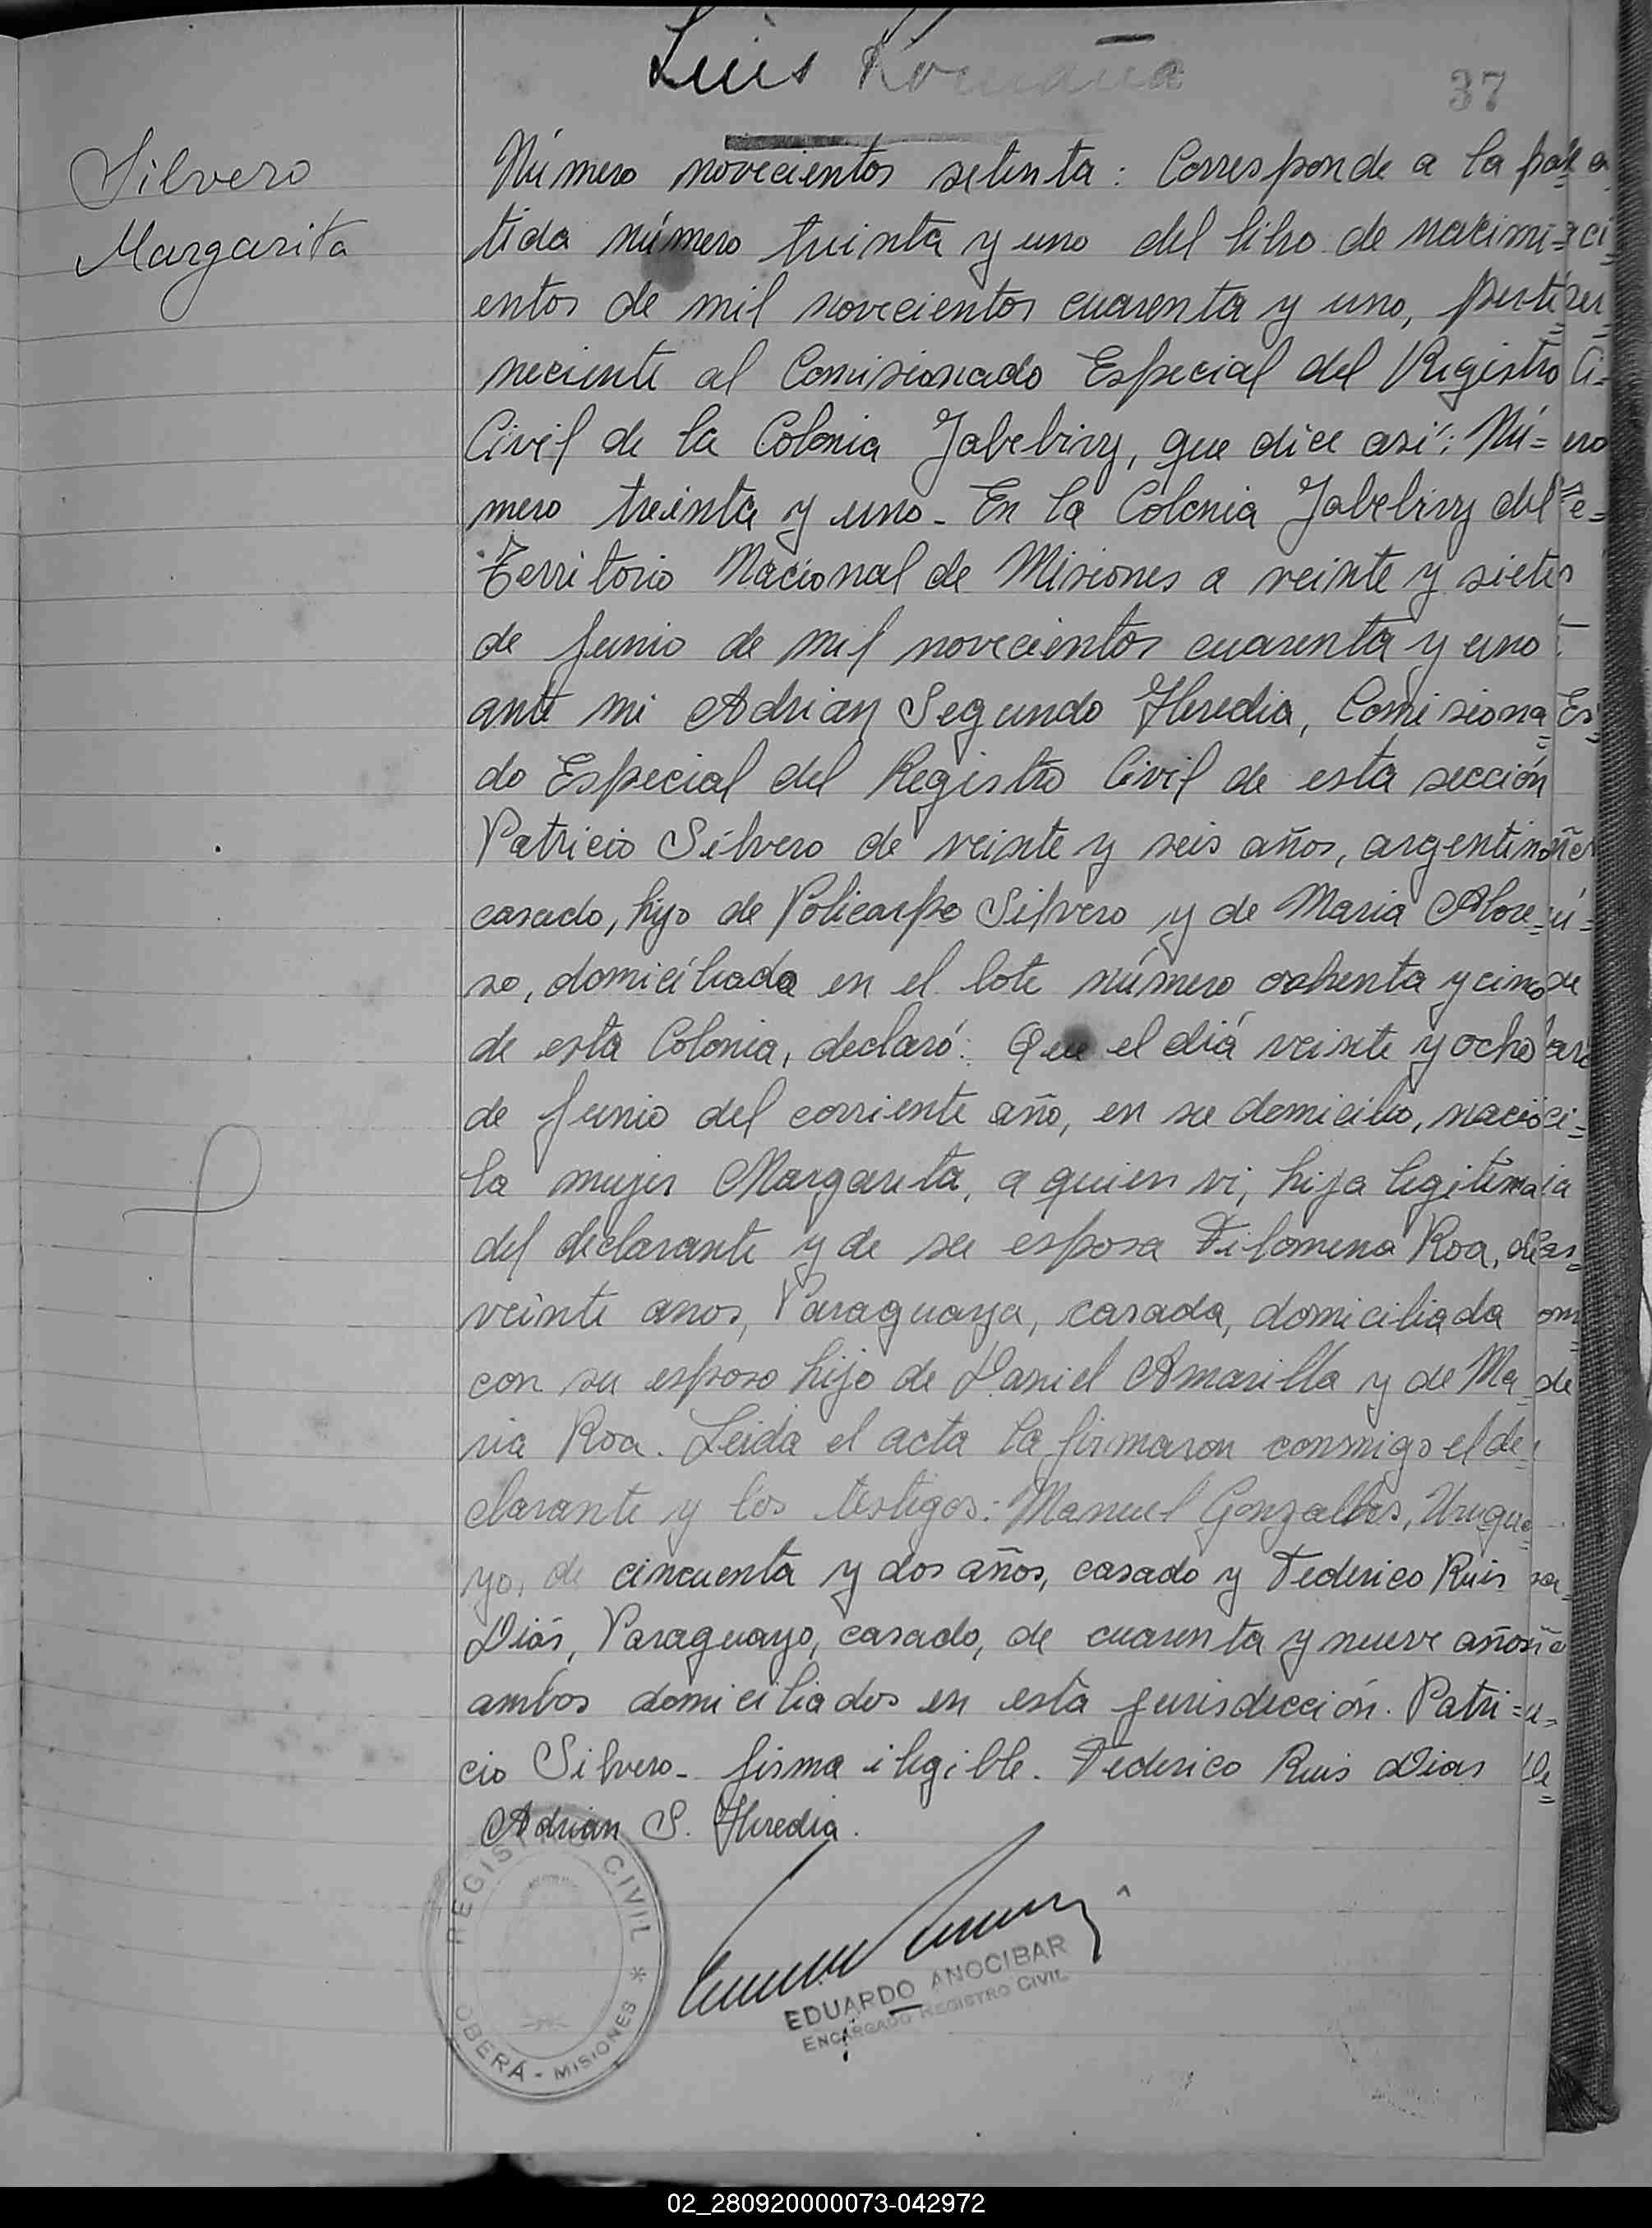 Luis Romaña
37
Silvero
Margarita
Número novecientos setenta: Corresponde a la par
tida número treinta y uno del libro de nacimi=
entos de mil novecientos cuarenta y uno, perte=
neciente al Comisionado Especial del Registro
Civil de la Colonia Jabebiry, que dice así: Nú=
mero treinta y uno - En la Colonia Jabebiry del
Territorio Nacional de Misiones a veinte y siete
de Junio de mil novecientos cuarenta y uno
ante mi Adrian Segundo Heredia, Comisiona=
do Especial del Registro Civil de esta sección
Patricio Silvero de veinte y seis años, argentino
casado, hijo de Policarpo Silvero y de Maria
so, domiciliado en el lote número ochenta y cinco
de esta Colonia, declaró: Que el diá veinte y ocho
de Junio del corriente año, en su domicilio, nació
la mujer Margarita, a quien vi, hija legitima
del declarante y de su esposa Filomena Roa, de
veinte anos, Paraguaya, casada, domiciliada
con su esposo hijo de Daniel Amarilla y de Ma=
ria Roa. Leida el acta la firmaron conmigo el de=
clarante y los testigos: Manuel Gonzalbes, Urugua=
yo, de cincuenta y dos años, casado y Federico Ruis
Diás, Paraguayo, casado, de cuarenta y nueve años
ambos domiciliados en esta jurisdicción. Patri=
cio Silvero - firma ilegible. Federico Ruis Dias
Adrian S. Heredia.
REGISTRO CIVIL * OBERÁ - MISIONES
EDUARDO ANOCIBAR
ENCARGADO REGISTRO CIVIL
02_280920000073-042972